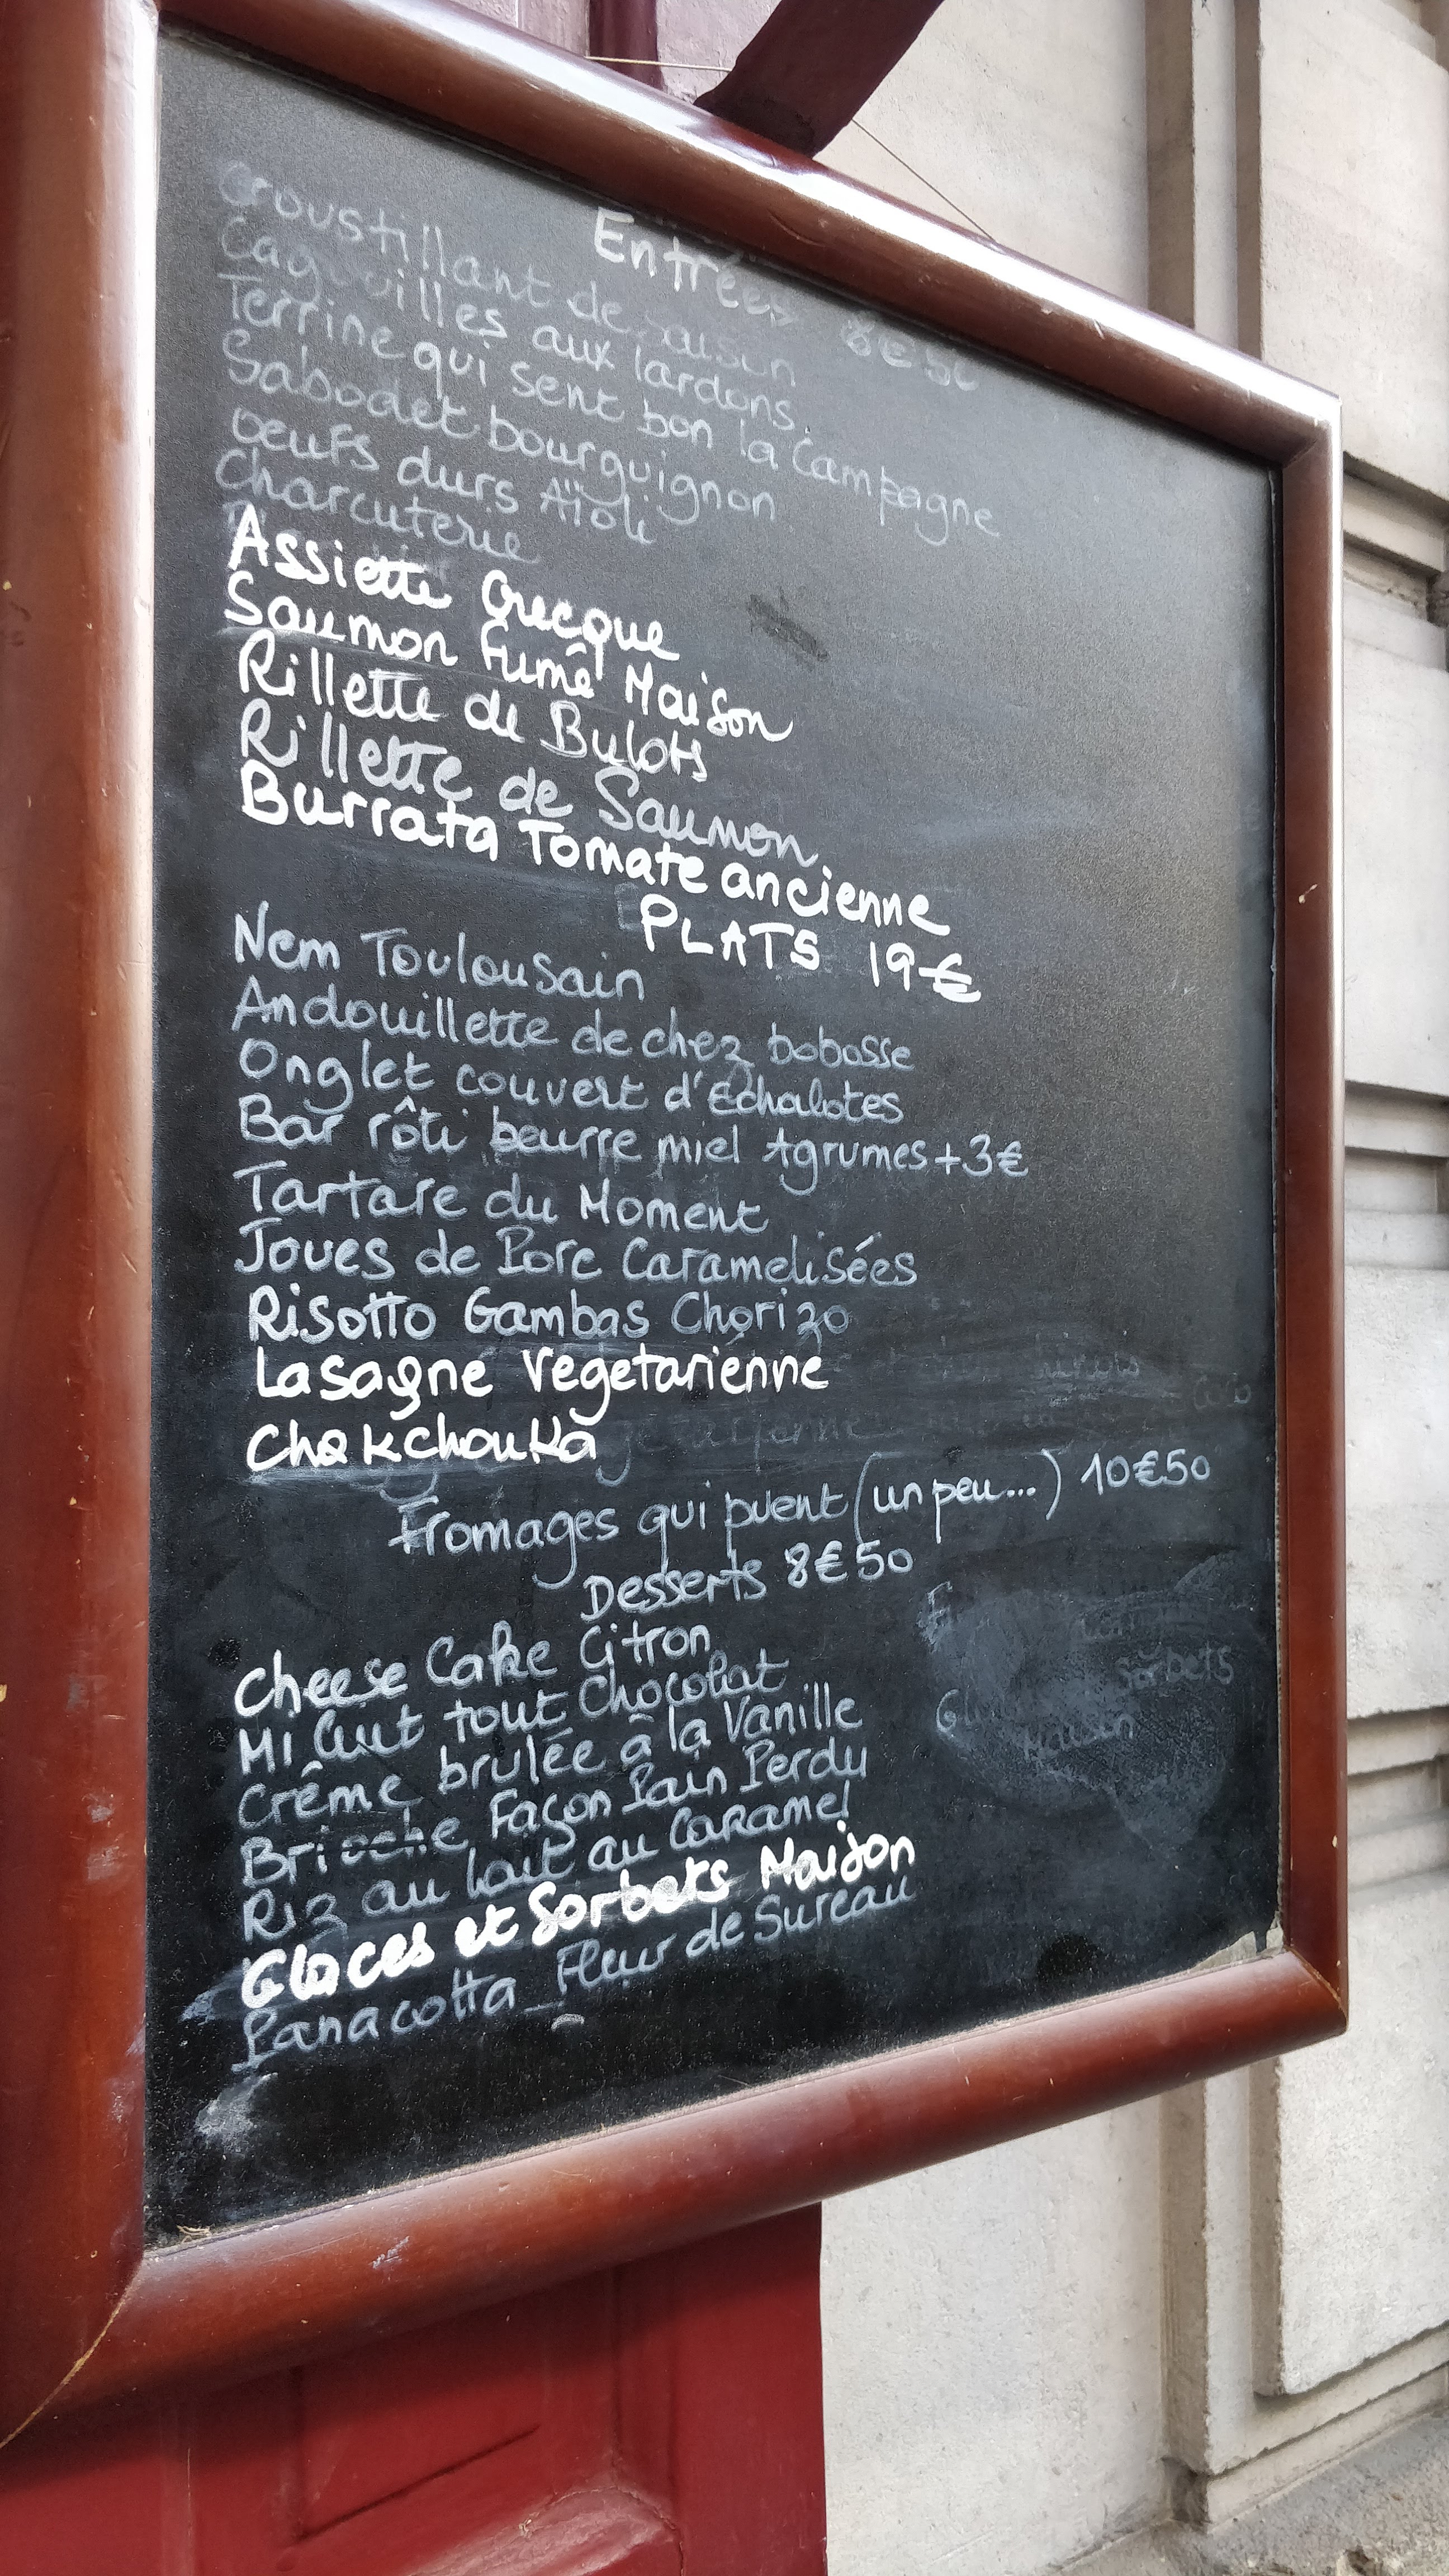 Entrées 8€50
Croustillant de saison
Cagouilles aux lardons.
Terrine qui sent bon la Campagne
Sabodet bourguignon
oeufs durs Aïoli
Charcuterie
Assiette Grecque
Saumon Fumé Maison
Rillette de Bulots
Rillette de Saumon
Burrata Tomate ancienne
PLATS 19€
Nem Toulousain
Andouillette de chez bobosse
Onglet couvert d'Echalotes
Bar rôti beurre miel Agrumes +3€
Tartare du Moment
Joues de Porc Caramelisées
Risotto Gambas Chorizo
Lasagne Vegetarienne
Chakchouka
Fromages qui puent (un peu...) 10€50
Desserts 8€50
Cheese Cake Citron
Mi Cuit tout Chocolat
Crême brulée à la Vanille
Brioche Façon Pain Perdu
Riz au Lait au Caramel
Glaces et Sorbets Maison
Panacotta Fleur de Sureau
Sorbets
Maison